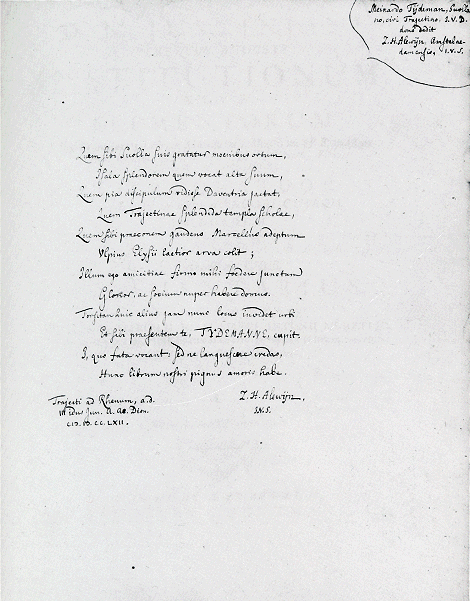 Meinardo Tydeman, Suolla
no, civi Trajectino. I.V.D.
dono dedit
Z.H. Alewijn. Amstelae-
damensis, I.V.S.
Quem sibi Suolla suis gratatur moenibus ortum,
Isala splendorem quem vocat alta suum,
Quem pia discipulum vidisse Daventria jactat,
Quem Trajectinae splendida templa scholae,
Quem sibi praeconem gaudens Marcellus adeptum
Ulpius Elysii laetior arva colit;
Illum ego amicitiae firmo mihi foedere junctum
Glorior, ac socium nuper habere domus.
Forsitan huic alius jam nunc locus invidet urbi
Et sibi praesentem te, TYDEMANNE, cupit.
I, quo fata vocant; sed ne languescere credas,
Hunc librum nostri pignus amoris habe.
Trajecti ad Rhenum, a.d.
III Idus Jun. A. Ae. Dion.
CIↃ.IↃ.CC.LXII.
Z.H. Alewijn.